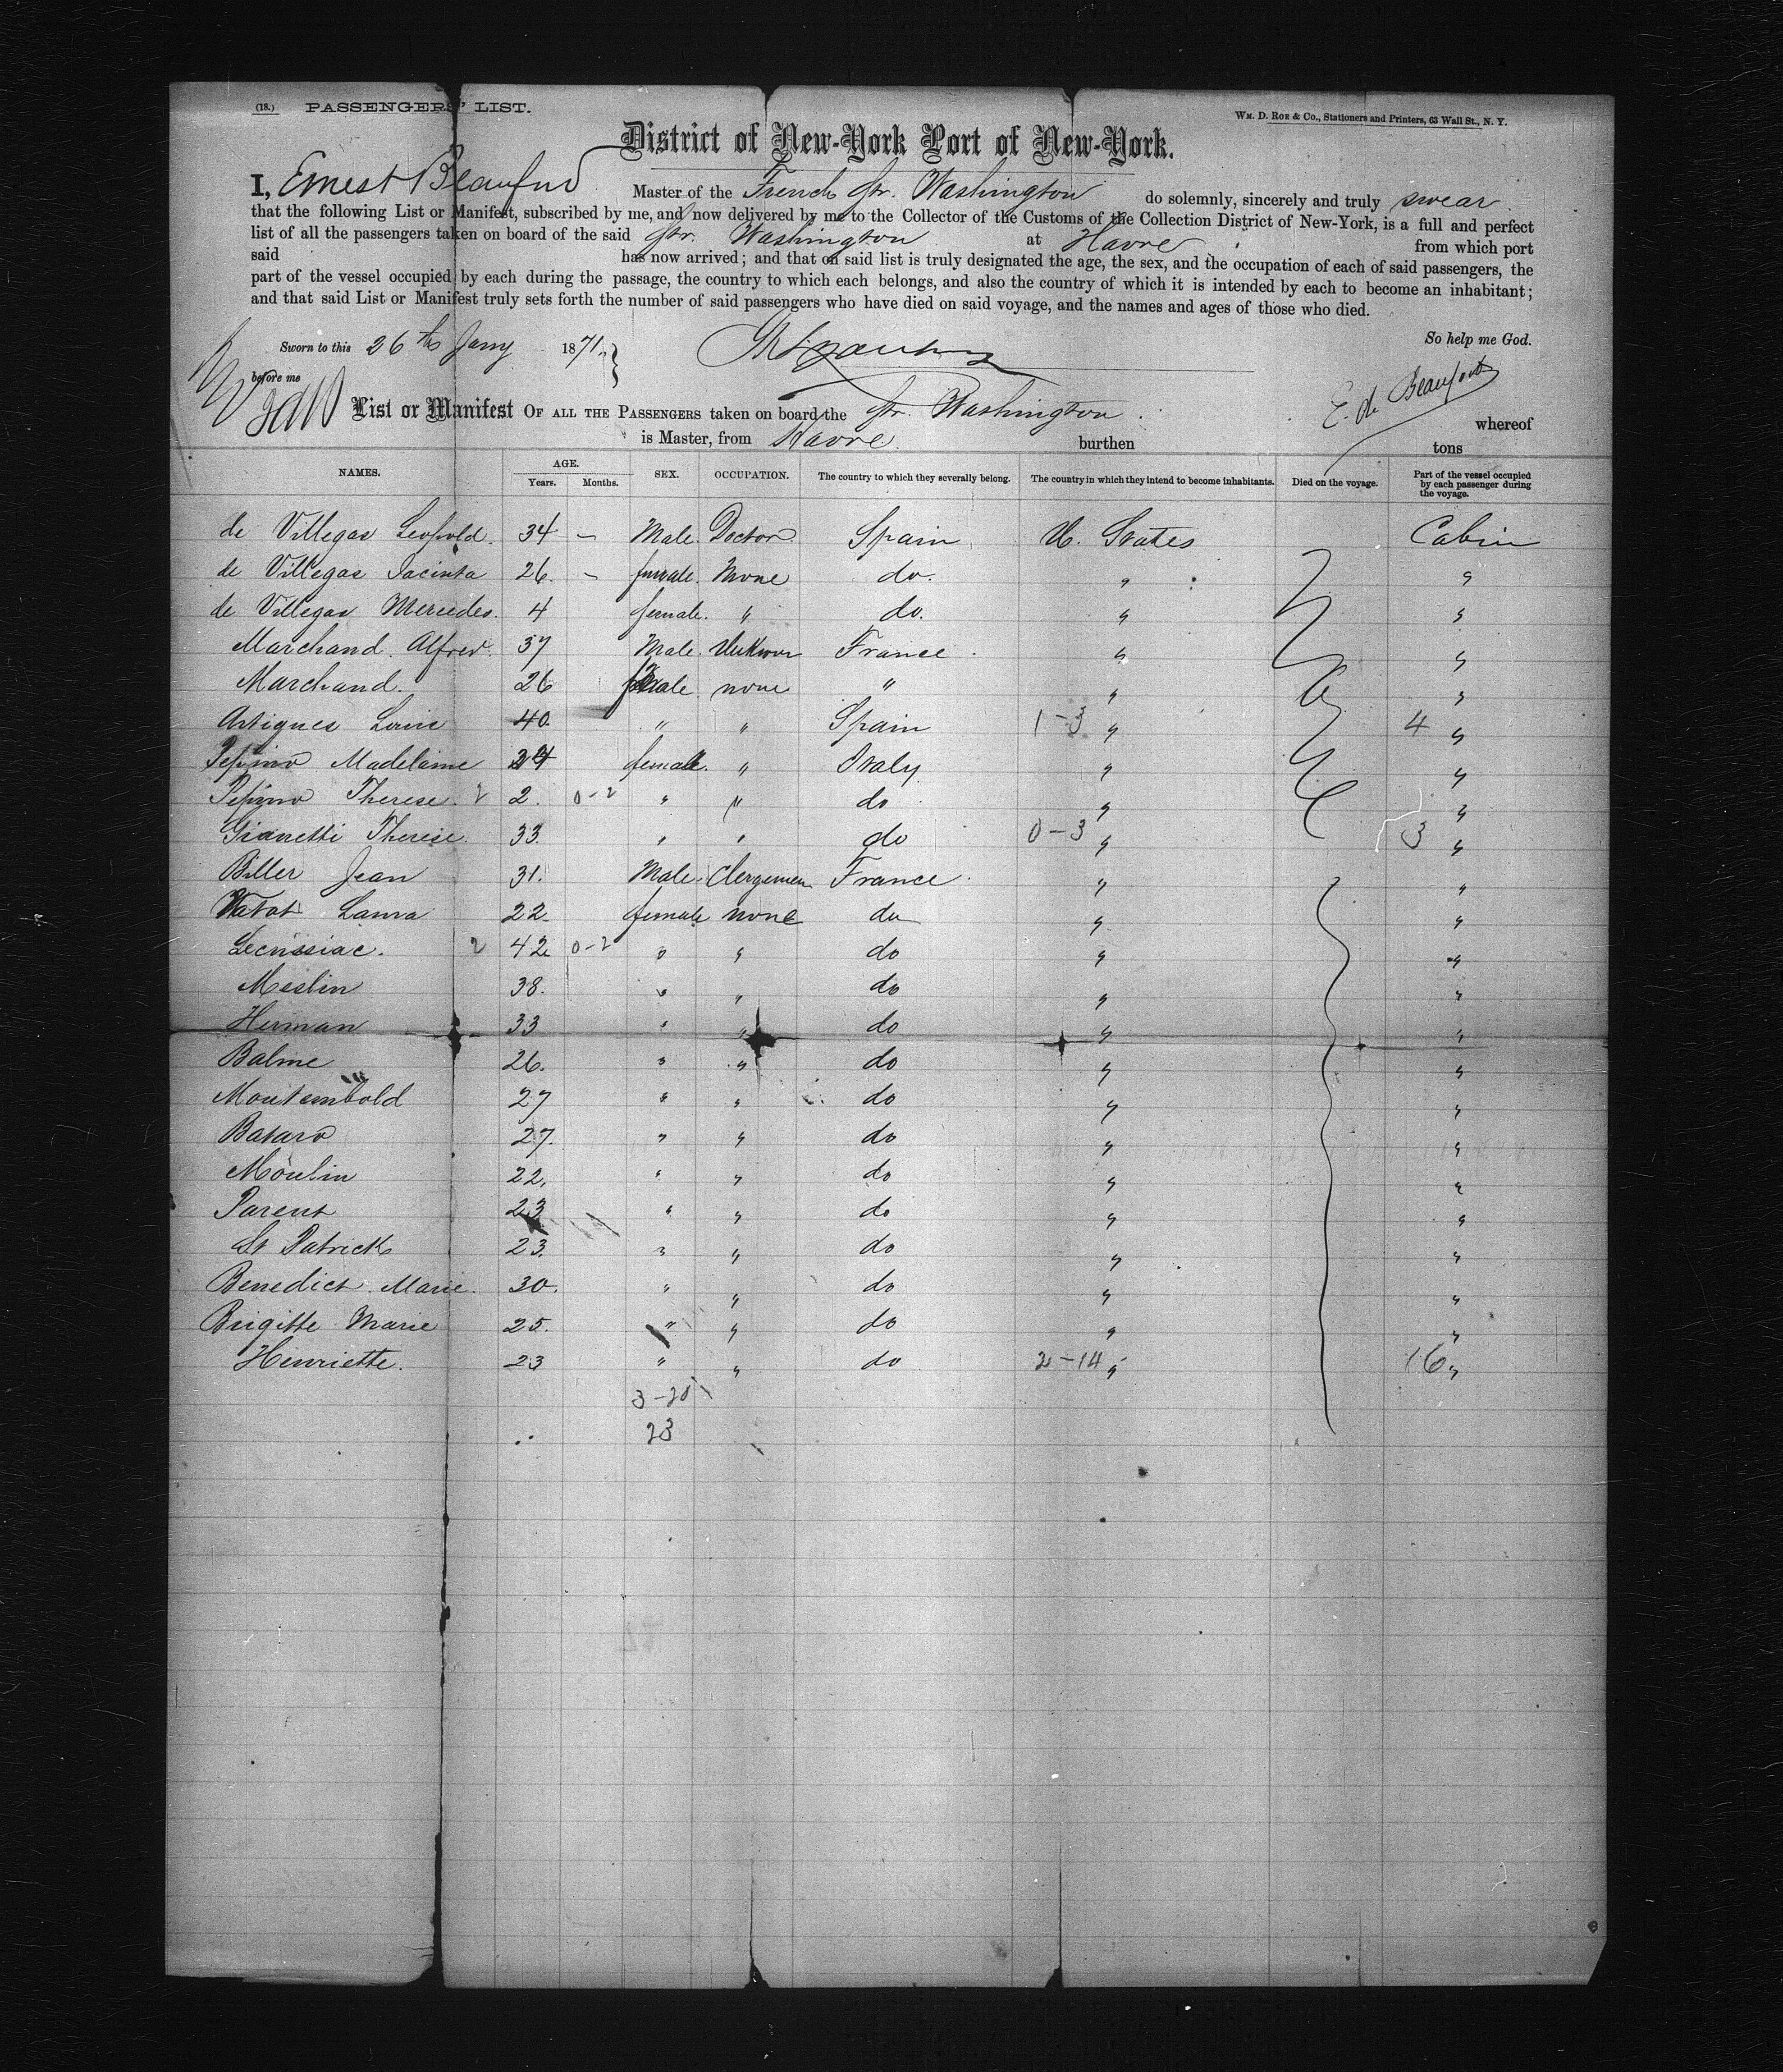 (18.) PASSENGERS' LIST.
Wm. D. Roe & Co., Stationers and Printers, 63 Wall St., N. Y.
District of New-York Port of New-York.
I, Ernest Beaufond Master of the French Str. Washington do solemnly, sincerely and truly swear
that the following List or Manifest, subscribed by me, and now delivered by me to the Collector of the Customs of the Collection District of New-York, is a full and perfect
list of all the passengers taken on board of the said Str. Washington at Havre from which port
said has now arrived; and that on said list is truly designated the age, the sex, and the occupation of each of said passengers, the
part of the vessel occupied by each during the passage, the country to which each belongs, and also the country of which it is intended by each to become an inhabitant;
and that said List or Manifest truly sets forth the number of said passengers who have died on said voyage, and the names and ages of those who died.
So help me God.
Sworn to this 26th Jany 1871.
before me
E. de Beaufond
List or Manifest OF ALL THE PASSENGERS taken on board the Str. Washington whereof
is Master, from Havre. burthen tons
NAMES. AGE. Years. Months. SEX. OCCUPATION. The country to which they severally belong. The country in which they intend to become inhabitants. Died on the voyage. Part of the vessel occupied by each passenger during the voyage.
de Villegas Leopold. 34 – Male Doctor Spain U. States Cabin
de Villegas Jacinta 26. – female. None do. " "
de Villegas Mercedes. 4 female. " do. " "
Marchand. Alfred. 37 Male Unknown France " "
Marchand. 26 female none " " "
Artigues Louis 40. " " Spain 1–3 " 4 "
Pepino Madelaine 24 female. " Italy " "
Pepino Therese. 2 2. 0–2 " " do " "
Gianetti Therese. 33. " " do 0–3 " 3 "
Biller Jean 31. Male. Clergemen France " "
Vatat Laura 22. female none do " "
Lecussiac. 2 42 0–2 " " do " "
Meslin 38. " " do " "
Herman 33 " " do " "
Balme 26. " " do " "
Moutembold 27 " " do " "
Bataro 27. " " do " "
Moulin 22. " " do " "
Parent 23 " " do " "
St Patrick 23. " " do " "
Benedict. Marie. 30. " " do " "
Brigitte Marie 25. " " do " "
Henriette. 23 " " do 2–14 " 16 "
3–20
23